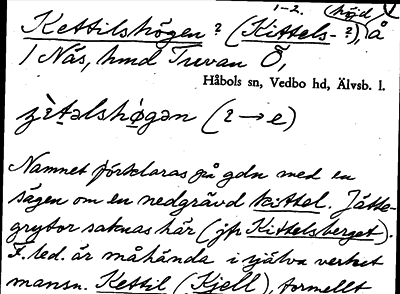 1-2. (höjd)
Kettilshögen? (Kittels-?), å
/ Näs, hmd Trevan Ö,
Håbols sn, Vedbo hd, Älvsb. l.
(ɩ→e)
Namnet förklaras på gdn med en
sägen om en nedgrävd kittel. Jätte-
grytor saknas här (jfr Kittelsberget).
F. led. är måhända i själva verket
mansn. Kettil (Kjell), formellt